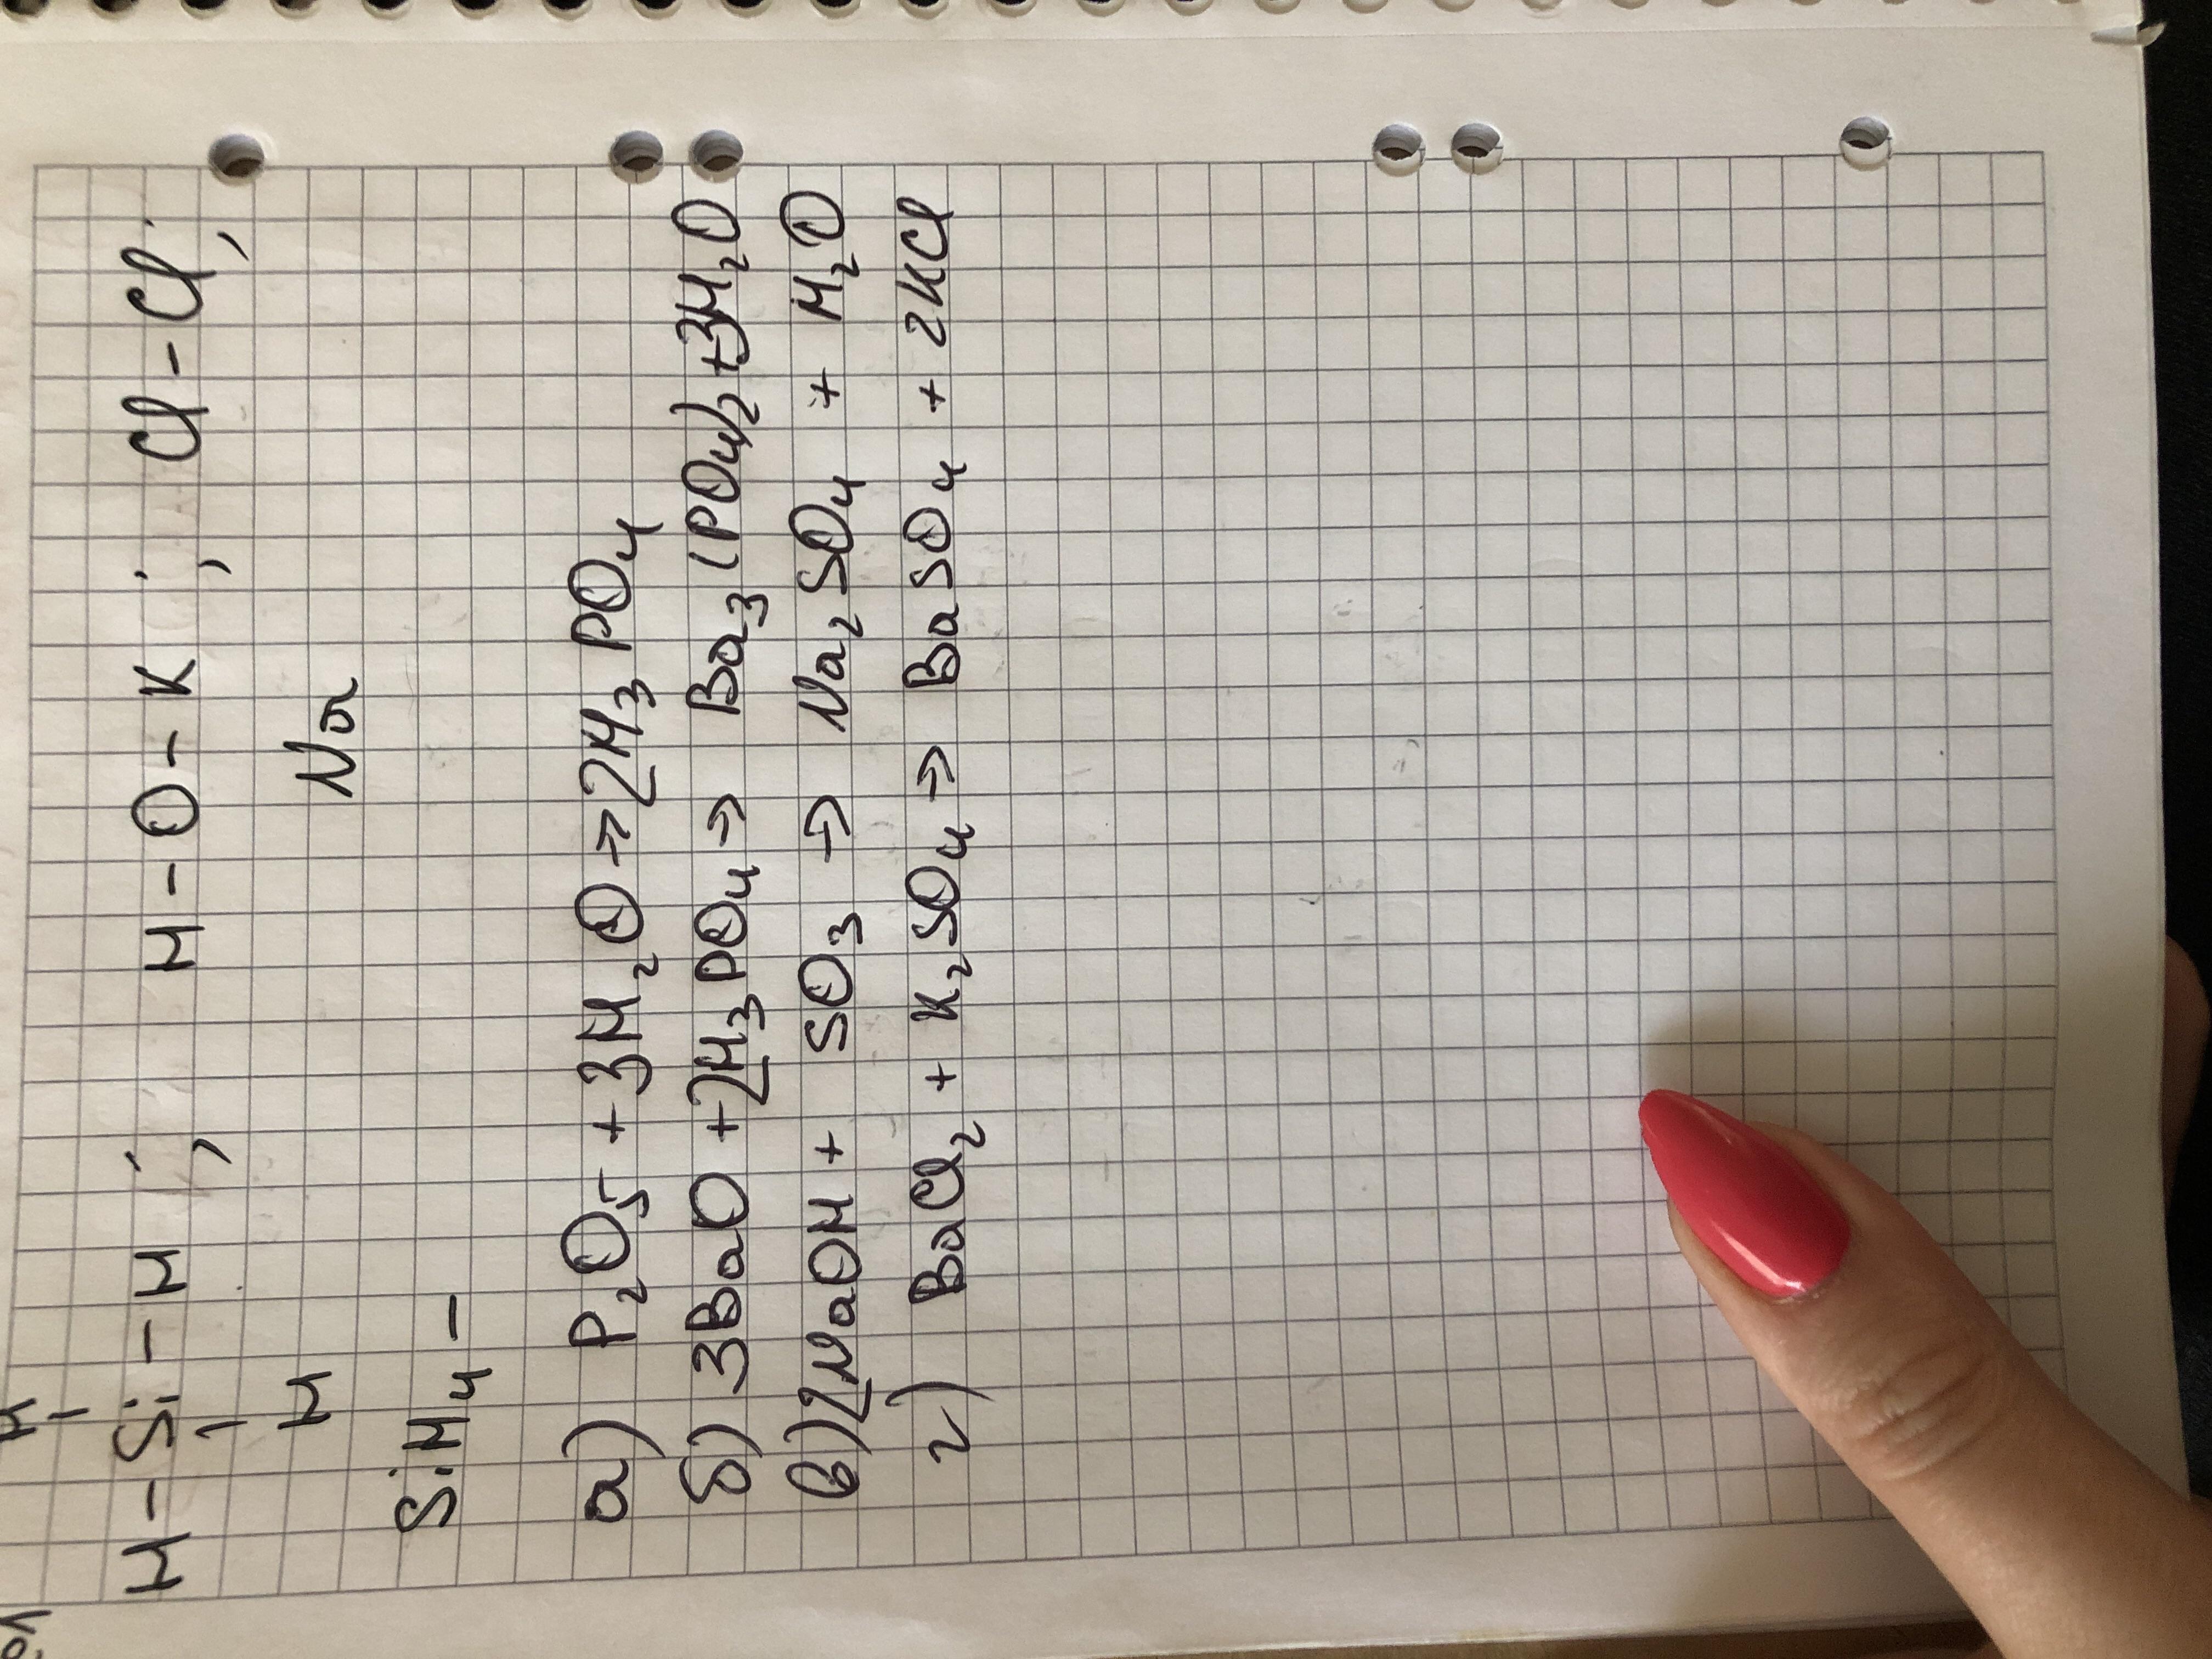 H
H - Si - H ; H - O - K ; Cl - Cl ;
H Na
SiH₄ -
а) P₂O₅ + 3H₂O → 2H₃PO₄
б) 3BaO + 2H₃PO₄ → Ba₃(PO₄)₂ + 3H₂O
в) 2NaOH + SO₃ → Na₂SO₄ + H₂O
г) BaCl₂ + K₂SO₄ → BaSO₄ + 2KCl